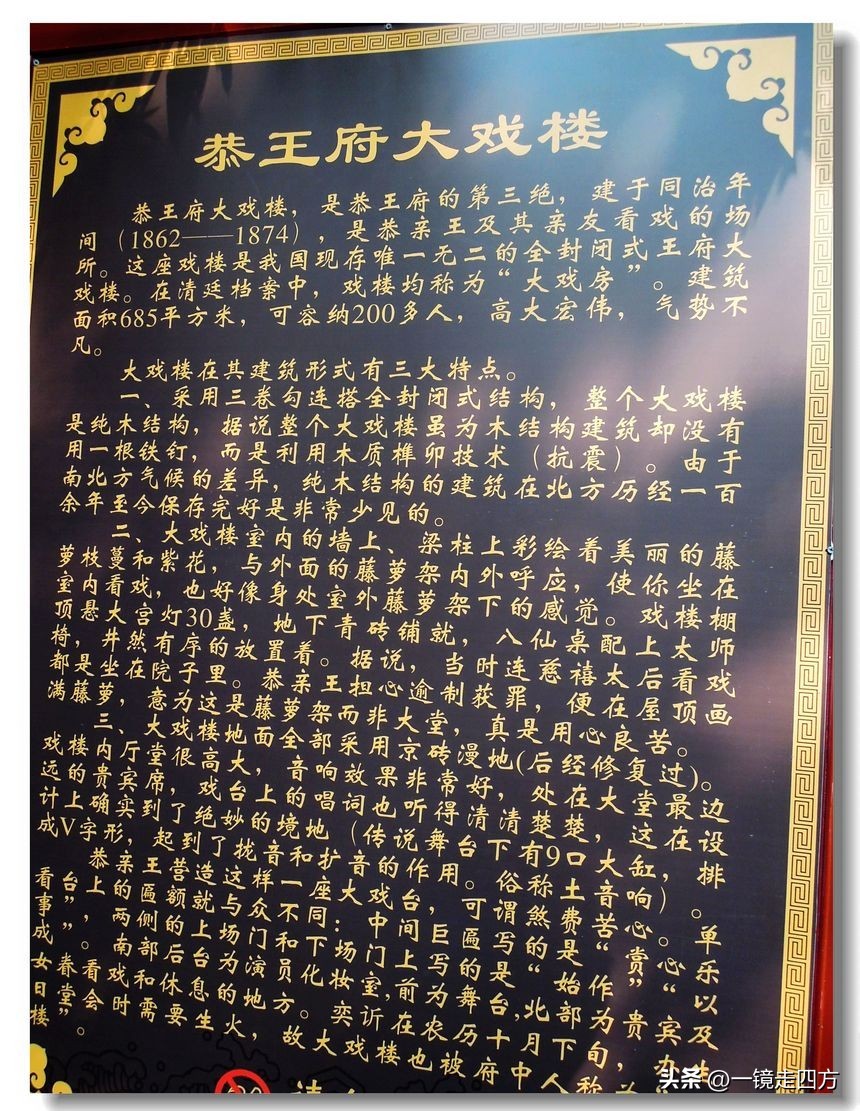 恭王府大戏楼
恭王府大戏楼，是恭王府的第三绝，建于同治年
间（1862——1874），是恭亲王及其亲友看戏的场
所。这座戏楼是我国现存唯一无二的全封闭式王府大
戏楼。在清廷档案中，戏楼均称为“大戏房”。建筑
面积685平方米，可容纳200多人，高大宏伟，气势不
凡。
大戏楼在其建筑形式有三大特点。
一、采用三卷勾连搭全封闭式结构，整个大戏楼
是纯木结构，据说整个大戏楼虽为木结构建筑却没有
用一根铁钉，而是利用木质榫卯技术（抗震）。由于
南北方气候的差异，纯木结构的建筑在北方历经一百
余年至今保存完好是非常少见的。
二、大戏楼室内的墙上、梁柱上彩绘着美丽的藤
萝枝蔓和紫花，与外面的藤萝架内外呼应，使你坐在
室内看戏，也好像身处室外藤萝架下的感觉。戏楼棚
顶悬大宫灯30盏，地下青砖铺就，八仙桌配上太师
椅，井然有序的放置着。据说，当时连慈禧太后看戏
都是坐在院子里。恭亲王担心逾制获罪，便在屋顶画
满藤萝，意为这是藤萝架而非大堂，真是用心良苦。
三、大戏楼地面全部采用京砖漫地(后经修复过)。
戏楼内厅堂很高大，音响效果非常好，处在大堂最边
远的贵宾席，戏台上的唱词也听得清清楚楚，这在设
计上确实到了绝妙的境地（传说舞台下有9口大缸，排
成V字形，起到了拢音和扩音的作用。俗称土音响）。
恭亲王营造这样一座大戏台，可谓煞费苦心。单
看台上的匾额就与众不同：中间巨匾写的是“赏心乐
事”，两侧的上场门和下场门上写的是“始作”以
成”。南部后台为演员化妆室,前为舞台,北部为贵宾及
女眷看戏和休息的地方。奕訢在农历十月下旬，为办生
日堂会时需要生火，故大戏楼也被府中人称
楼”。
头条 @一镜走四方